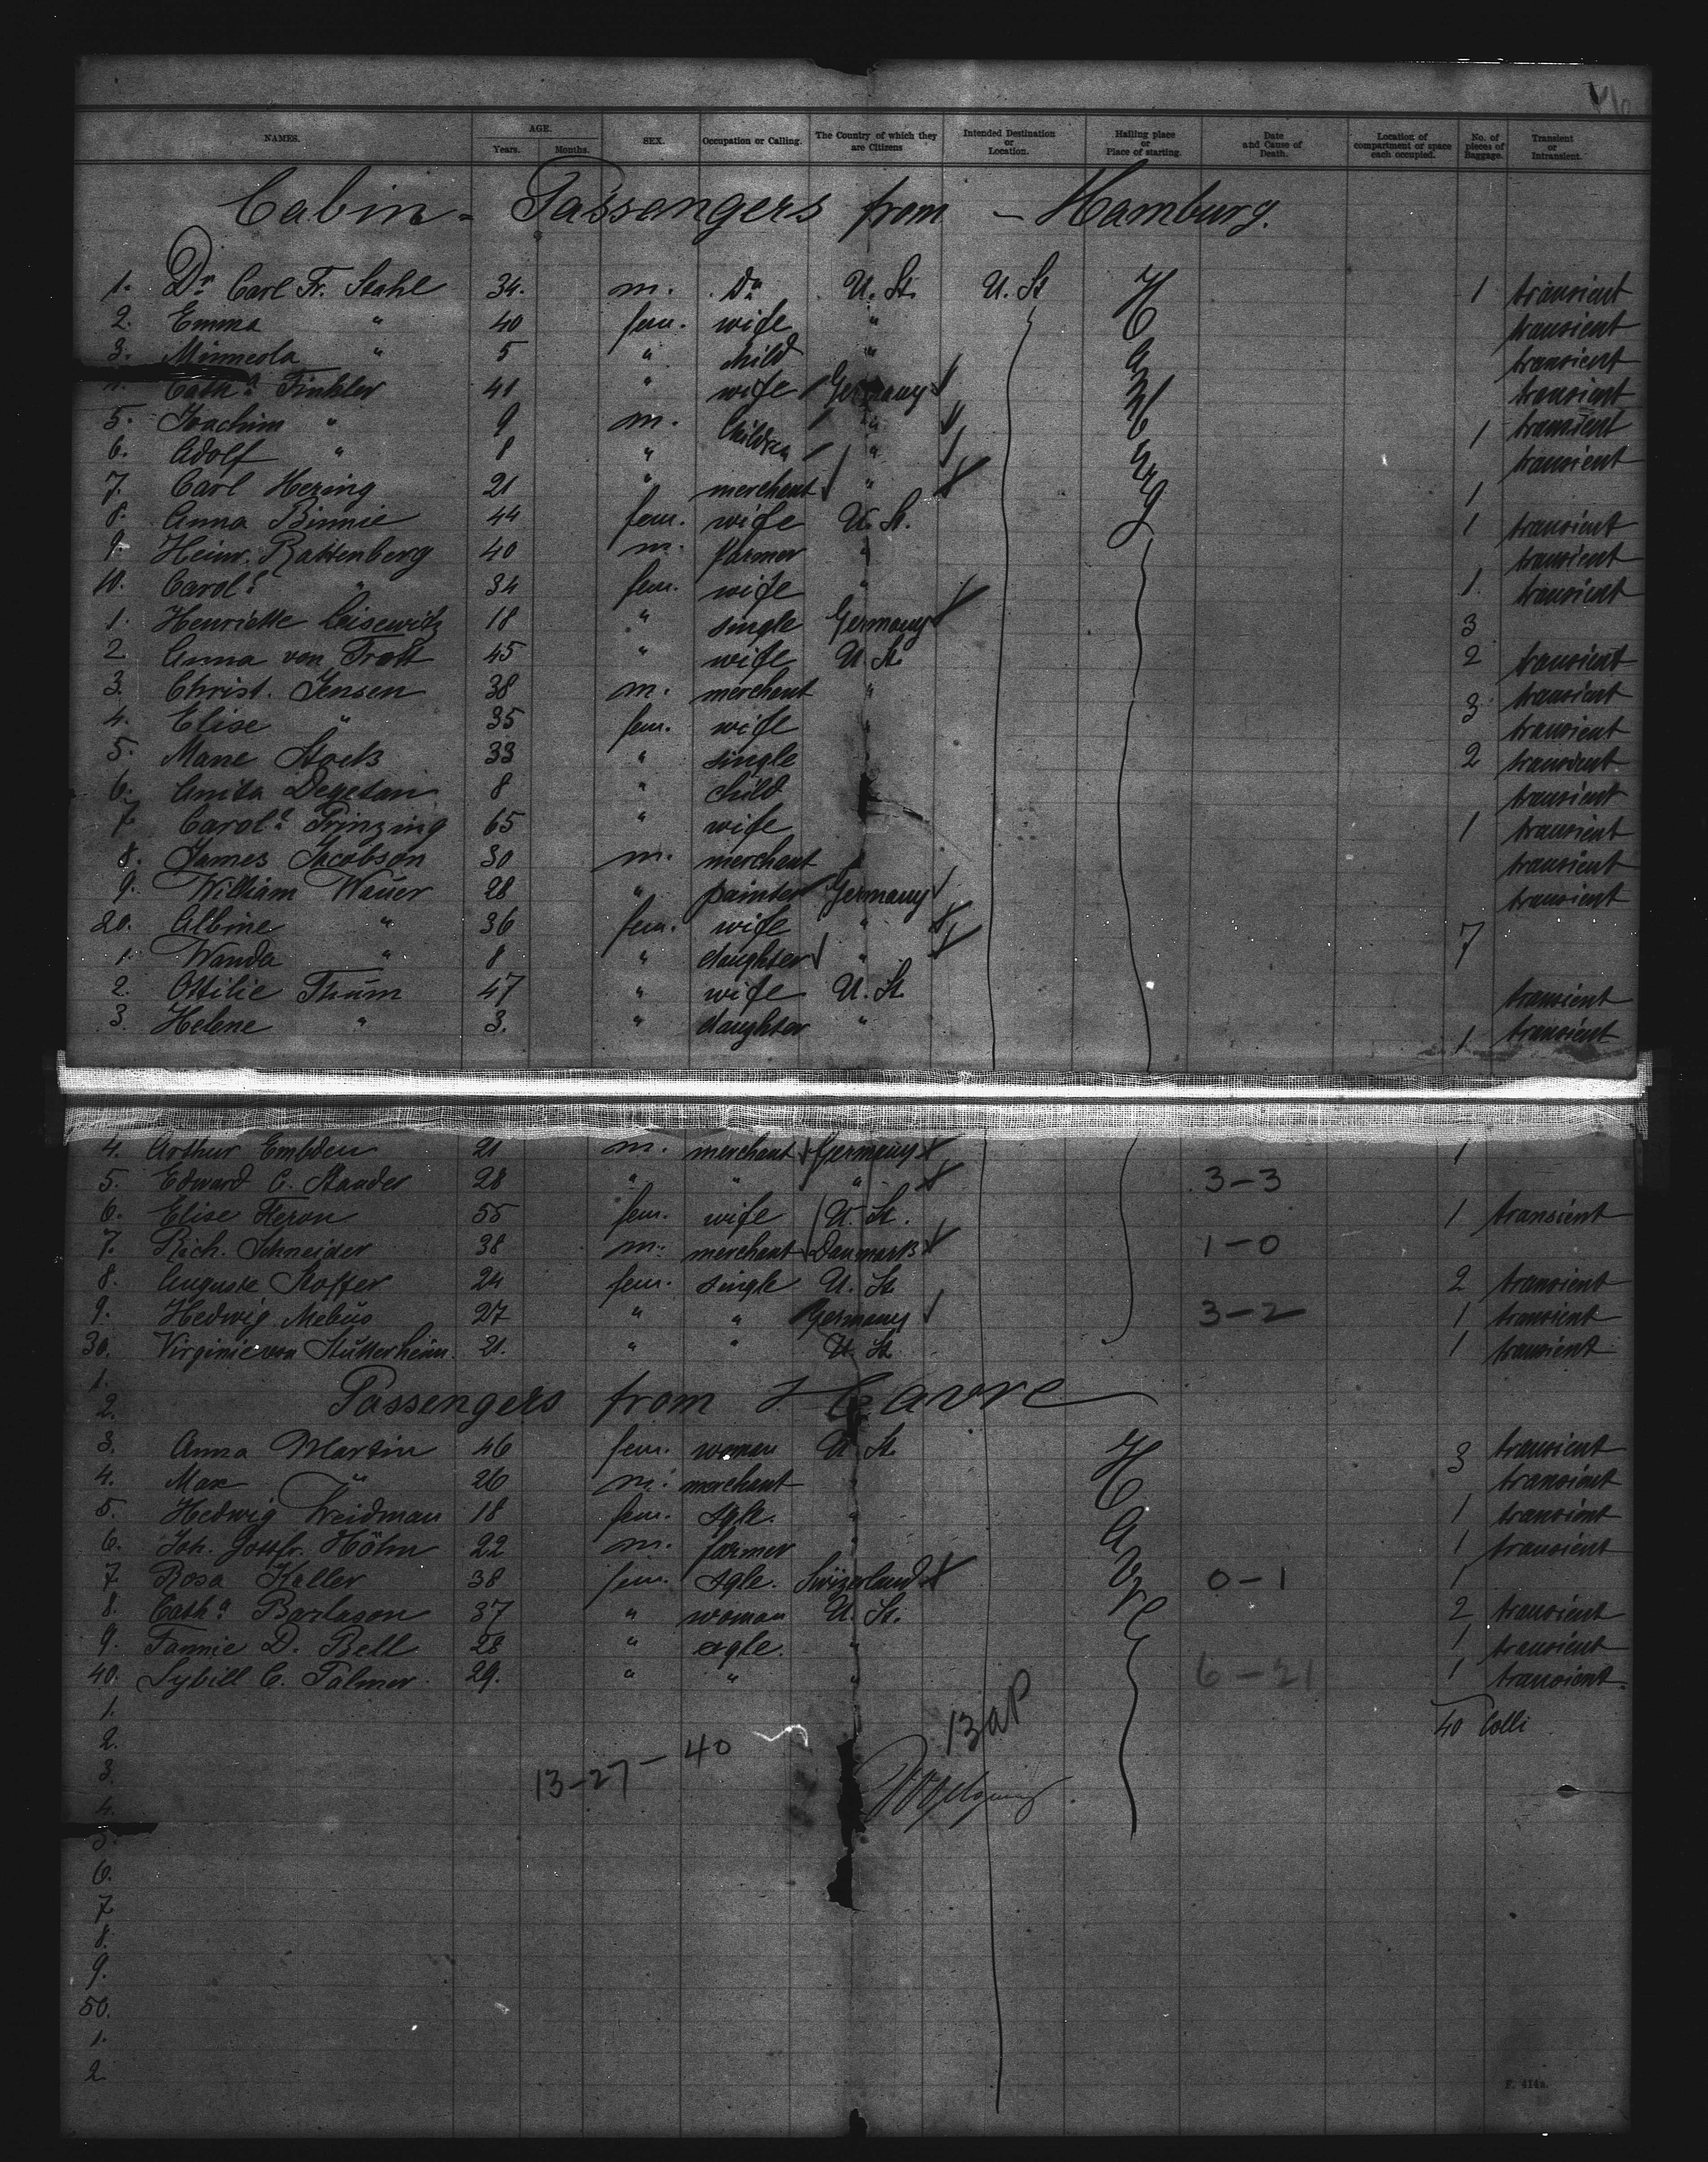 NAMES. AGE. Years. Months. SEX. Occupation or Calling. The Country of which they are Citizens Intended Destination or Location. Hailing place or Place of starting. Date and Cause of Death. Location of compartment or space each occupied. No. of pieces of Baggage. Transient or Intransient.
Cabin - Passengers from - Hamburg.
1. Dr Carl Fr. Stahl 34. m. Dr U. St. U. St Hamburg 1 transient
2. Emma " 40 fem. wife " transient
3. Minneola " 5 " child " transient
4. Cath.a Finkler 41 " wife Germany transient
5. Joachim " 9 m. Children " 1 transient
6. Adolf " 8 " " transient
7. Carl Hering 21 " merchant " 1
8. Anna Binnie 44 fem. wife U. St. 1 transient
9. Heinr. Rattenberg 40 m. farmer " transient
10. Carol.e " 34 fem. wife " 1. transient
1. Henriette Leisewitz 18 " single Germany 3
2 Anna von Trott 45 " wife U. St. 2 transient
3. Christ. Jensen 38 m. merchant " transient
4. Elise " 35 fem. wife " 3 transient
5. Marie Stock 33 " single 2 transient
6. Anita Degetau 8 " child transient
7 Carol.e Prinzing 65 " wife 1 transient
8. James Jacobson 30 m. merchant transient
9. William Wauer 28 " painter Germany transient
20. Albine " 36 fem. wife " 7
1 Wanda " 8 " daughter "
2. Ottilie Thum 47 " wife U. St. transient
3. Helene " 3. " daughter " 1 transient
4. Arthur Embden 21 m. merchant Germany 1
5. Edward C. Stander 28 " " " 3-3
6. Elise Heron 55 fem. wife U. St. 1 transient
7. Rich. Schneider 38 m. merchant Danmark 1-0
8. Auguste Stoffer 24 fem. single U. St. 2 transient
9. Hedwig Mebus 27 " " Germany 3-2 1 transient
30. Virginie von Stutterheim. 21. " " U. St. 1 transient
1.
2. Passengers from Havre
3. Anna Martin 46 fem. woman U. St. Havre 3 transient
4. Max " 26 m. merchant " transient
5. Hedwig Weidman 18 fem. sgle. " 1 transient
6. Joh. Gottfr. Höhn 22 m. farmer " 1 transient
7 Rosa Keller 38 fem. sgle. Swizerland 0-1 1
8. Cath.a Barlason 37 " woman U. St. 2 transient
9. Fannie D. Bell 28 " sgle. " 1 transient
40. Sybill C. Palmer 29. " " " 6-21 1 transient.
1. 40 Colli
2. 13-27-40 13 a P
3.
4.
5.
6.
7.
8.
9.
50.
1.
2
F. 414a.